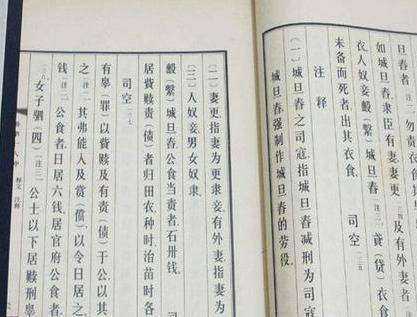 旦舂者
如城旦舂隶臣有妻妻更及有外妻者
衣人奴妾毄(繫)城旦舂 注二 貣(貸)衣食
未备而死者出其衣食 司空
注释
(一)城旦舂之司寇,指城旦舂减刑为司
城旦舂,强制作城旦舂的劳役。
(二)妻更,指妻为更隶,有外妻,指妻为
(三)人奴妾,男女奴隶。
毄(繫)城旦舂,公食当责者,石卅钱。
司空
居赀赎责(债)者归田农,种时、治苗时各
有辠(罪)以赀赎及有责(债)于公,以其
之,其弗能入及赏(償),以令日居之
钱 注二;公食者,日居六钱。居官府公食者
女子驷(四) 注三。公士以下居赎刑辠
释文 注释